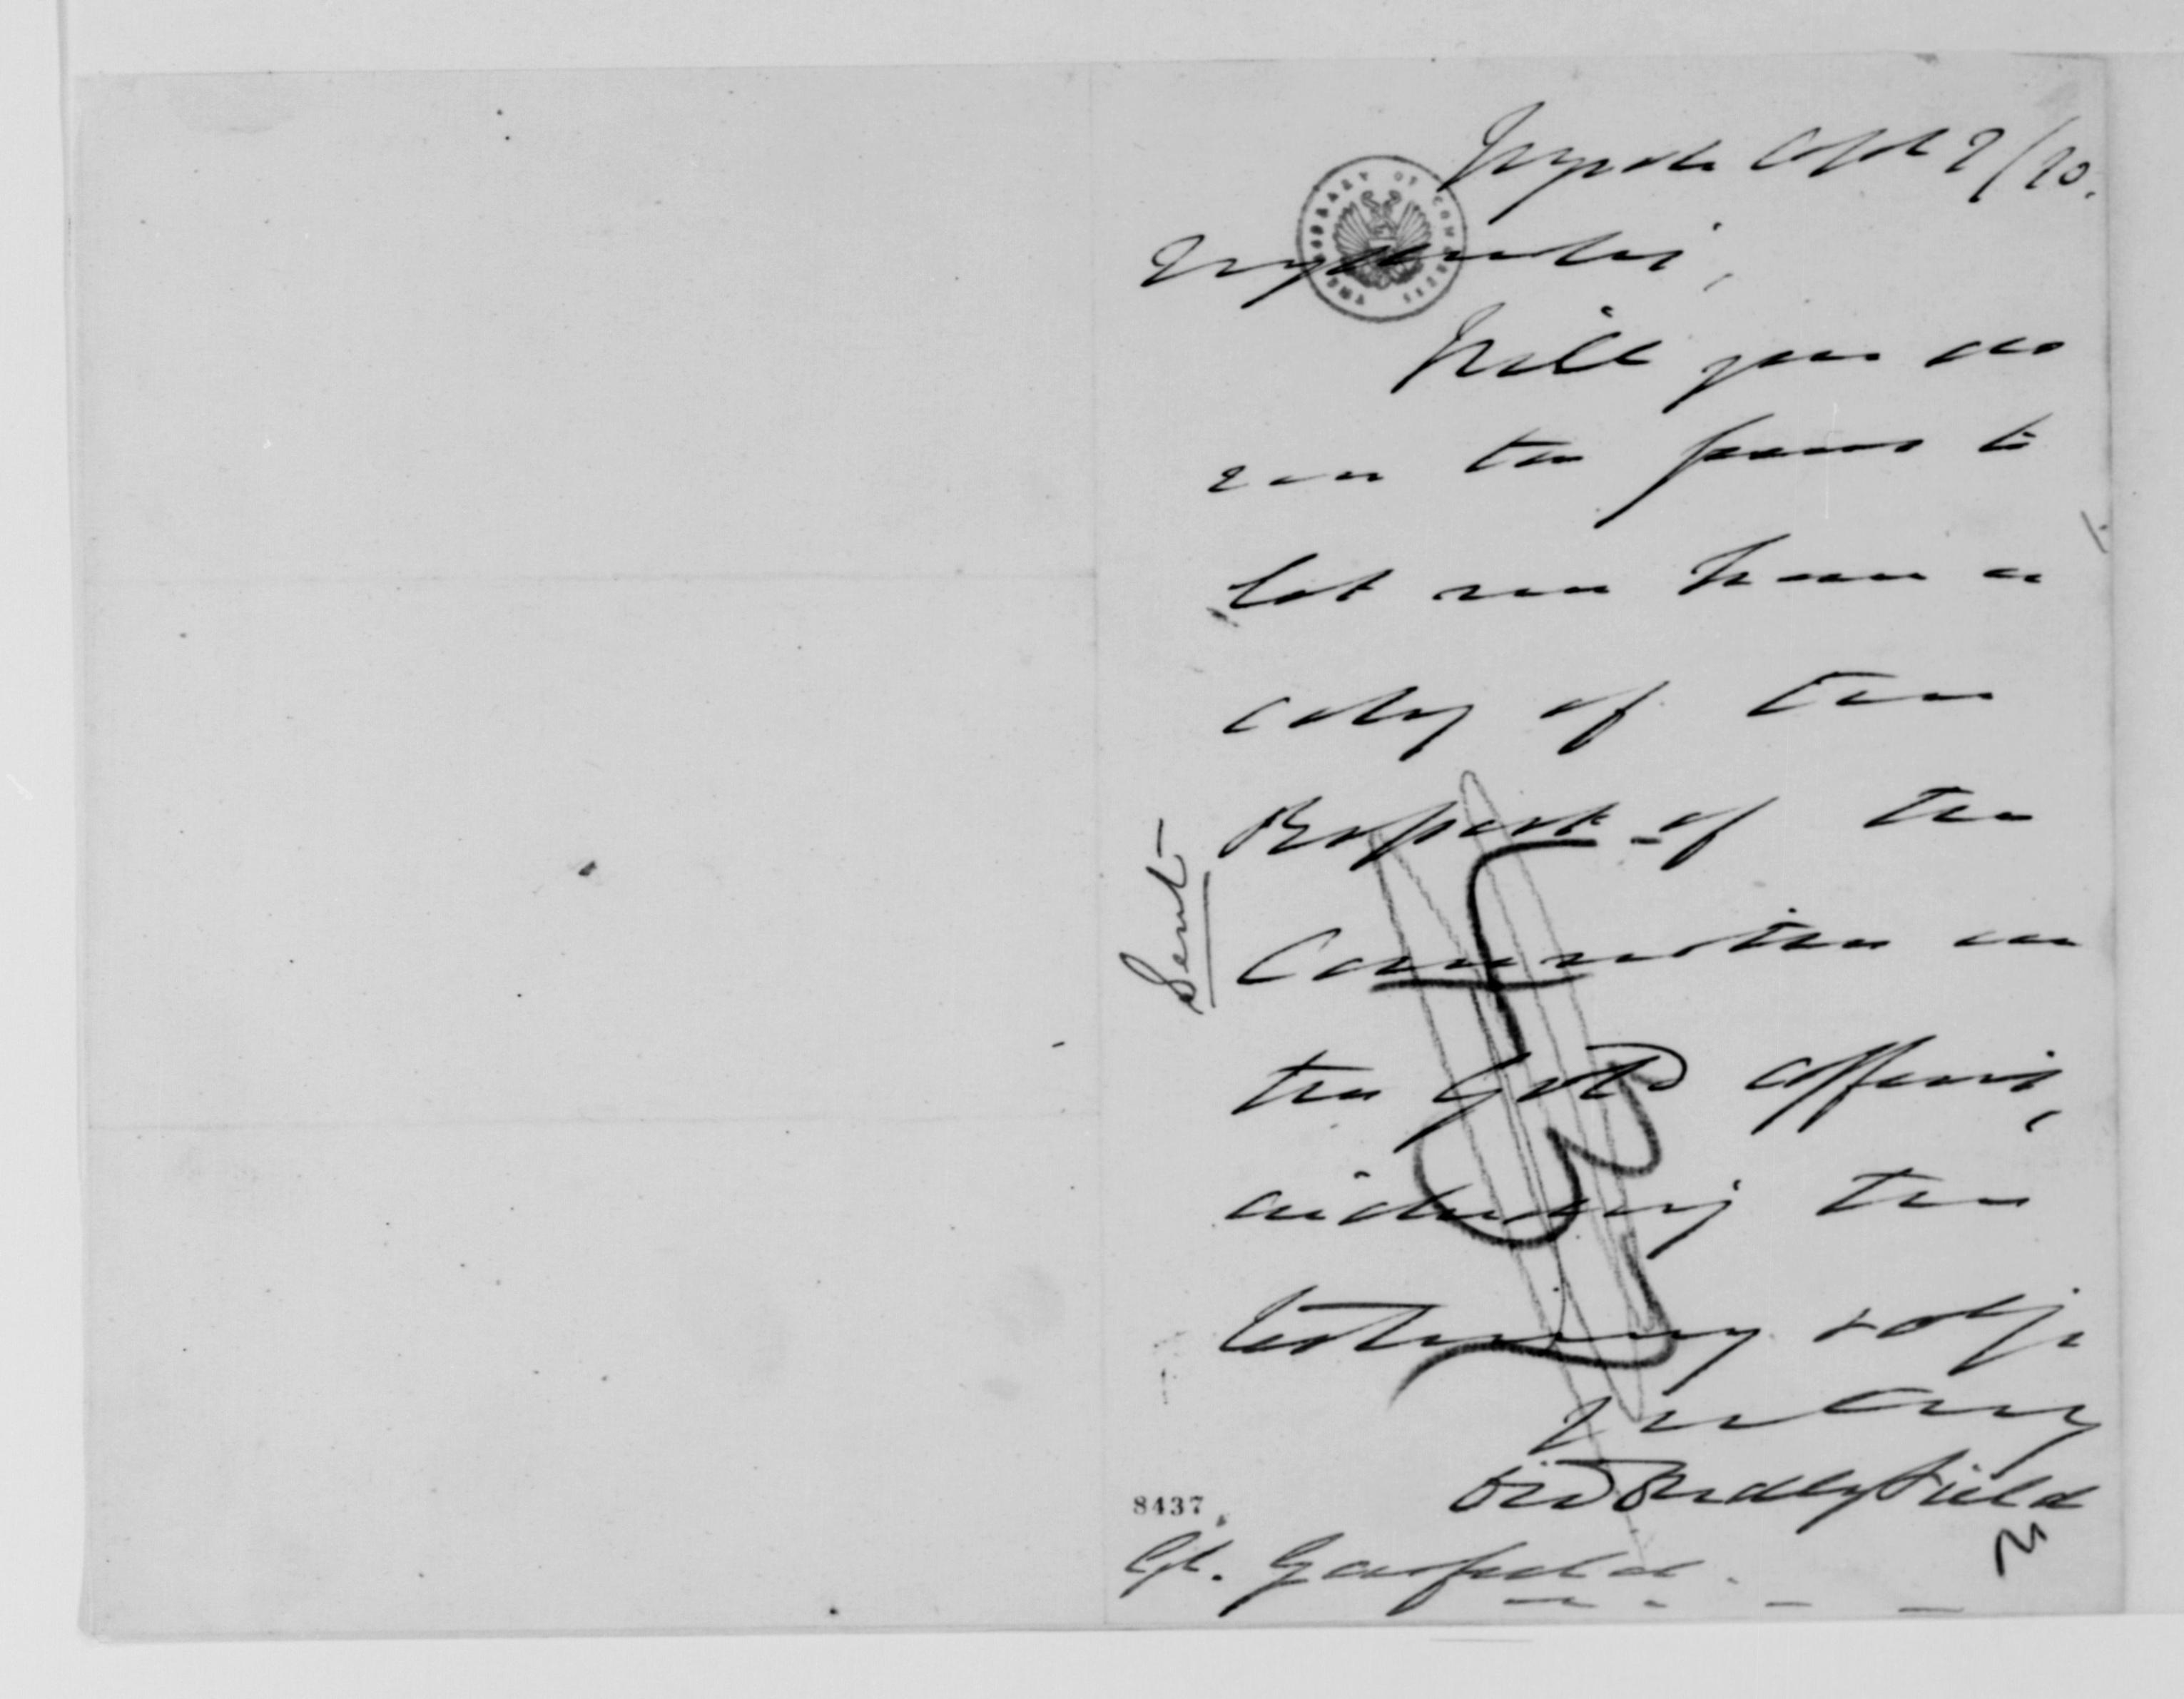 New York April 9/70.
My dear Sir,
Will you do
me the favor to
let me have a
copy of the
Report of the
Committee on
the Gold affair,
including the
testimony & obge
Yrs truly
David Dudley Field
Gl. Garfield.
Sent
8437
THE LIBRARY OF CONGRESS